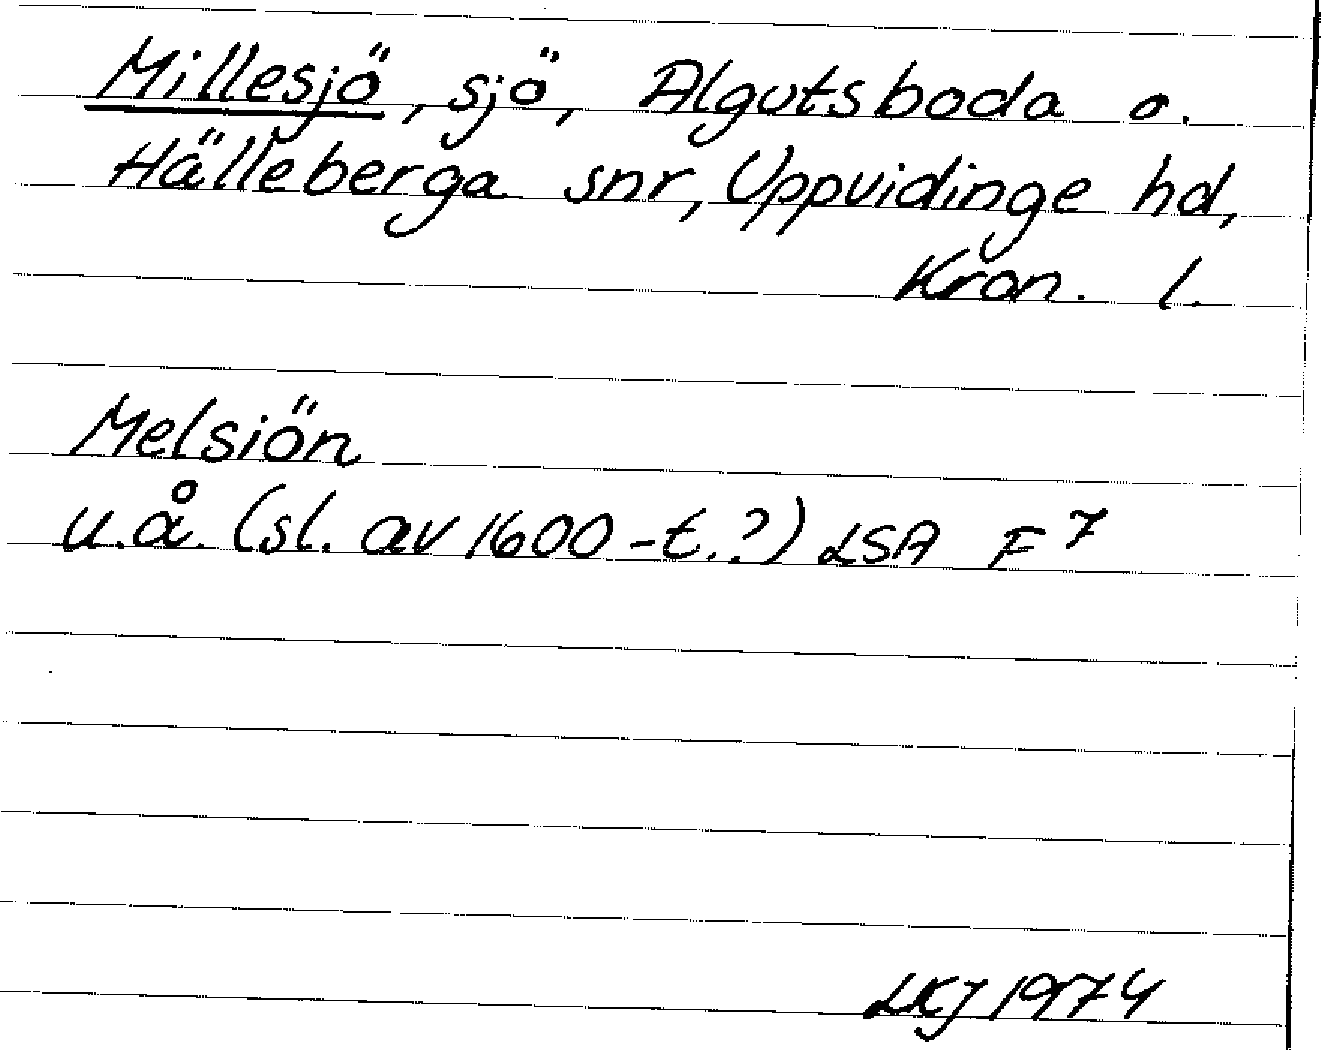 Millesjö, sjö, Algutsboda o.
Hälleberga snr, Uppvidinge hd,
Kron. l.
Melsiön
u.å. (sl. av 1600-t.?) LSA F 7
LKJ 1974